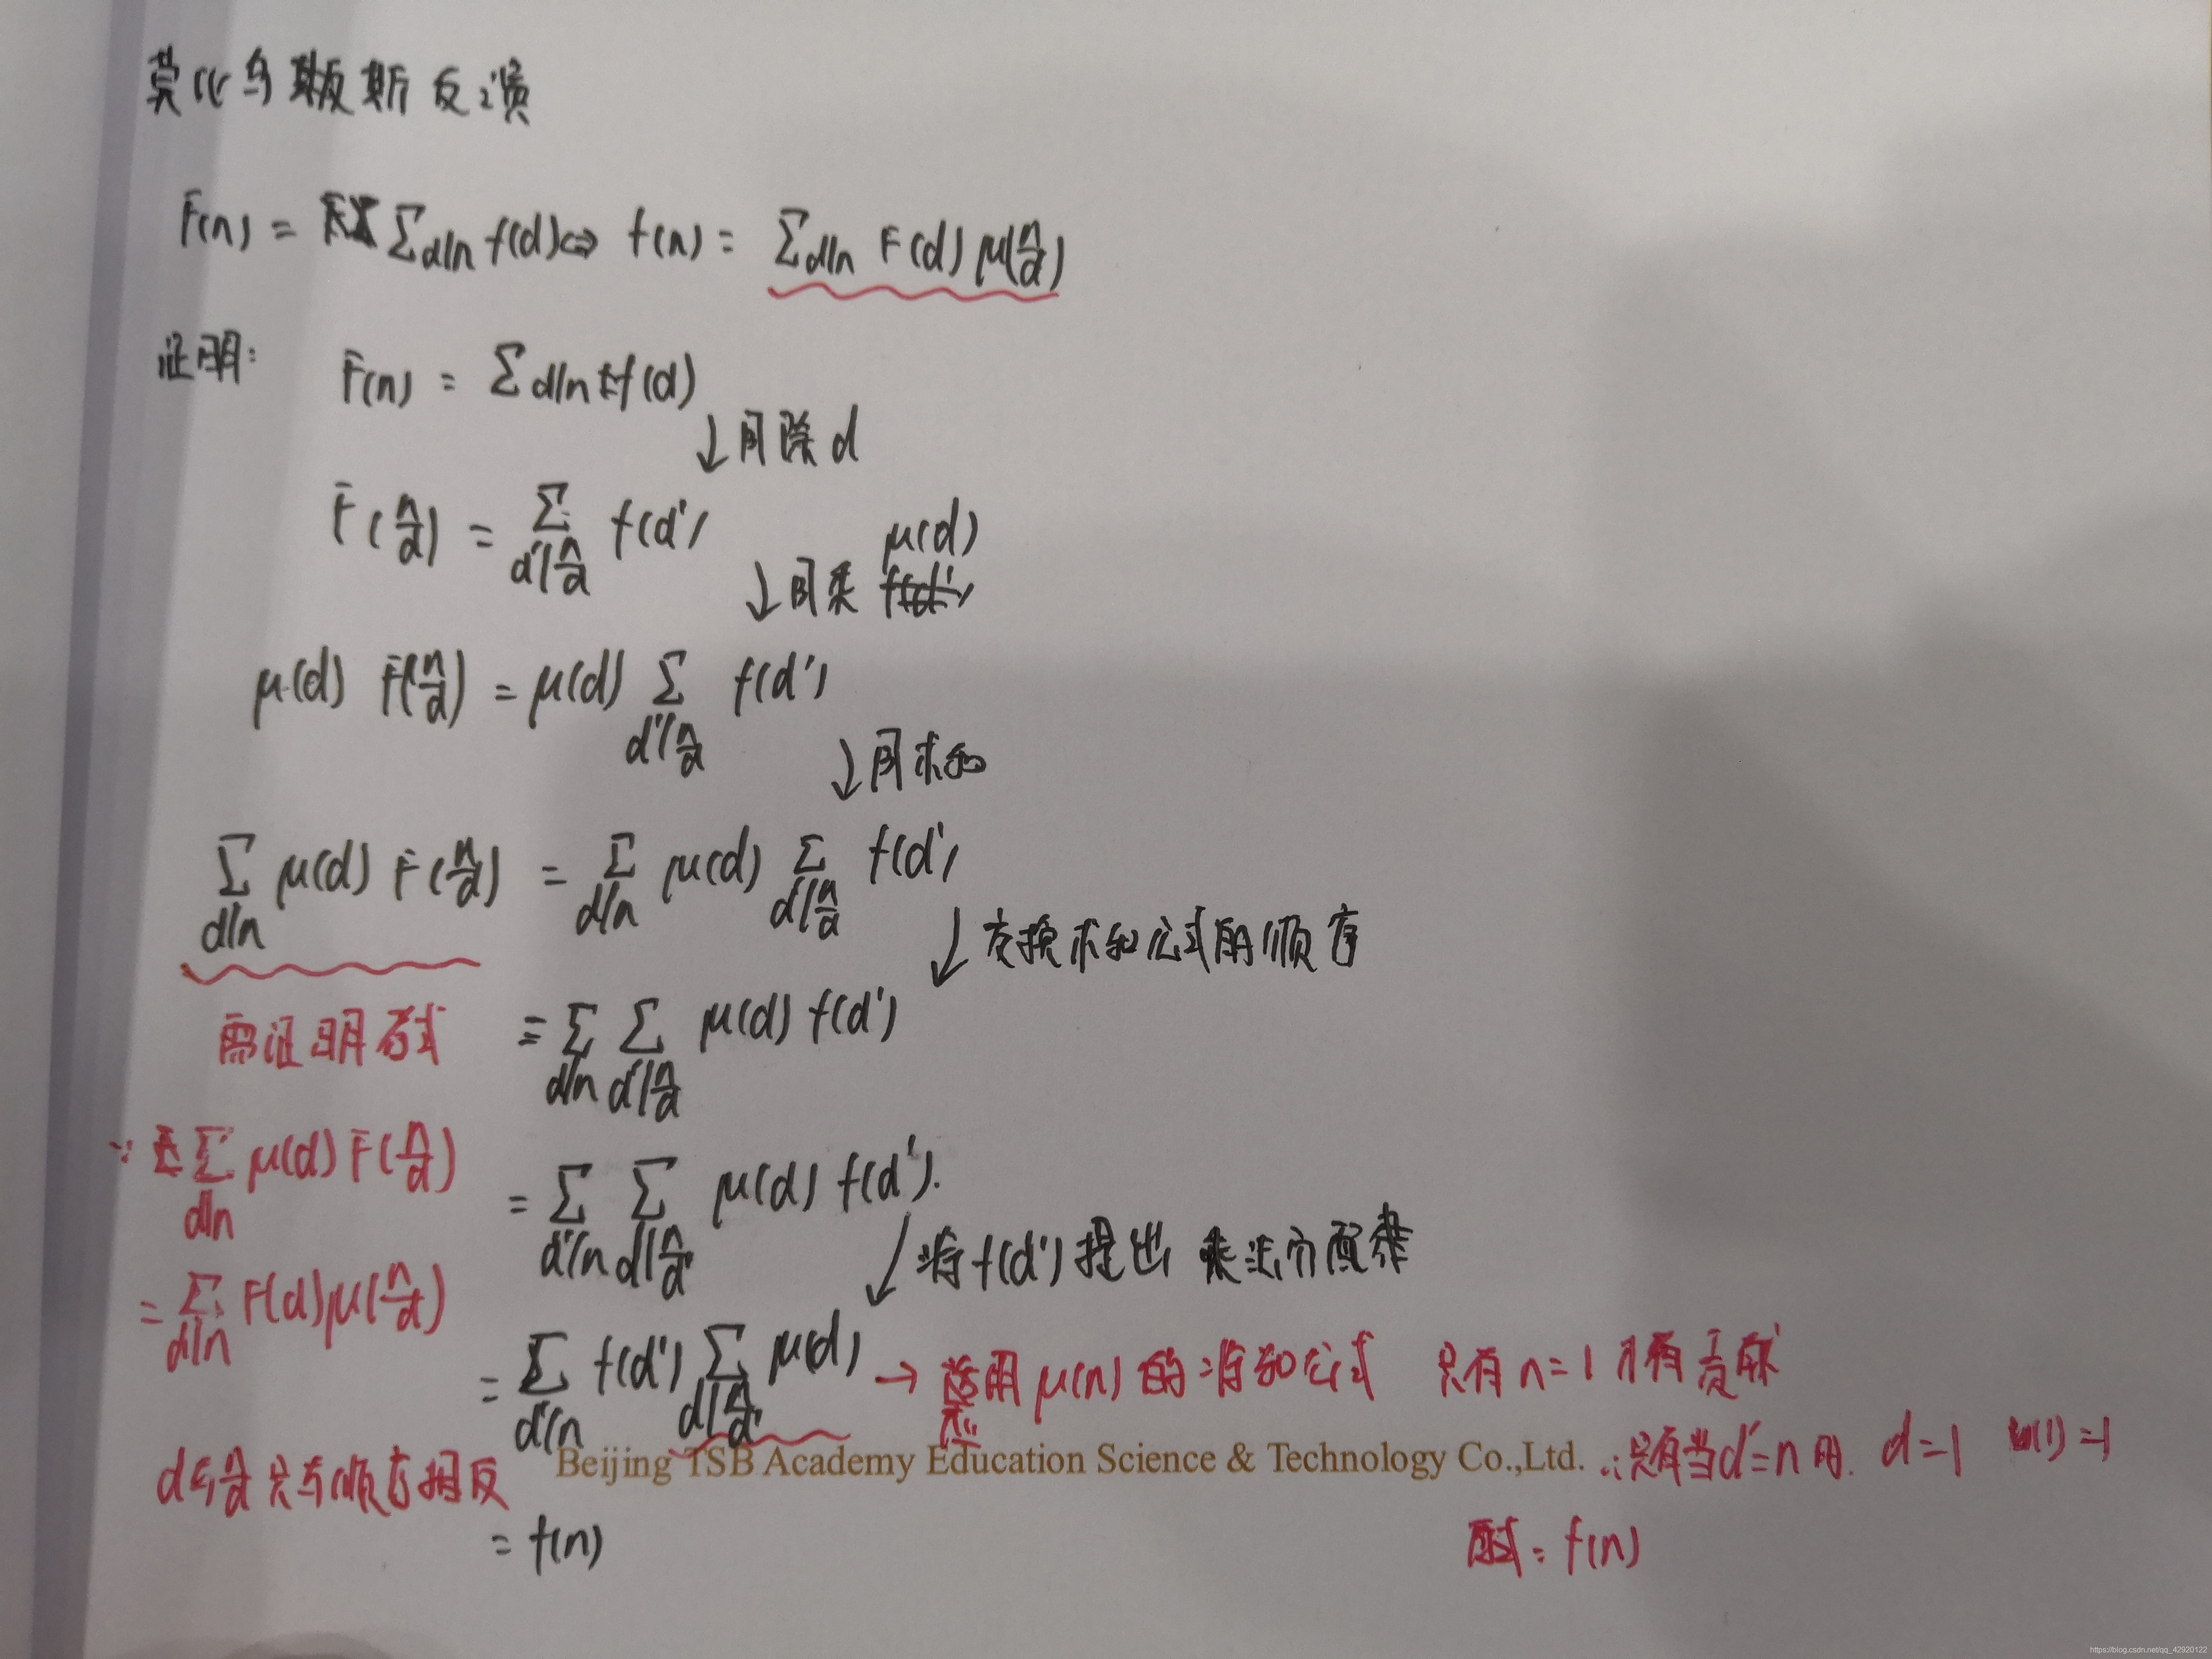 莫比乌斯反演
F(n) = Σ_{d|n} f(d) ⇔ f(n) = Σ_{d|n} F(d) μ(n/d)
证明:
F(n) = Σ d|n f(d)
↓ 同除 d
F(n/d) = Σ_{d'|n/d} f(d')
↓ 同乘 μ(d)
μ(d) F(n/d) = μ(d) Σ_{d'|n/d} f(d')
↓ 同求和
Σ_{d|n} μ(d) F(n/d) = Σ_{d|n} μ(d) Σ_{d'|n/d} f(d')
↓ 交换求和公式的顺序
需证明该式
= Σ_{d|n} Σ_{d'|n/d} μ(d) f(d')
∵ Σ_{d|n} μ(d) F(n/d)
= Σ_{d'|n} Σ_{d|n/d'} μ(d) f(d').
↓ 将f(d')提出 乘法分配律
= Σ_{d|n} F(d) μ(n/d)
= Σ_{d'|n} f(d') Σ_{d|n/d'} μ(d) → 运用 μ(n) 的 求和公式 只有 n=1 才有贡献
d与n/d 只与顺序相反
Beijing TSB Academy Education Science & Technology Co.,Ltd.
∴只有当d'=n时. d=1 μ(1)=1
= f(n)
原式 = f(n)
https://blog.csdn.net/qq_42920122